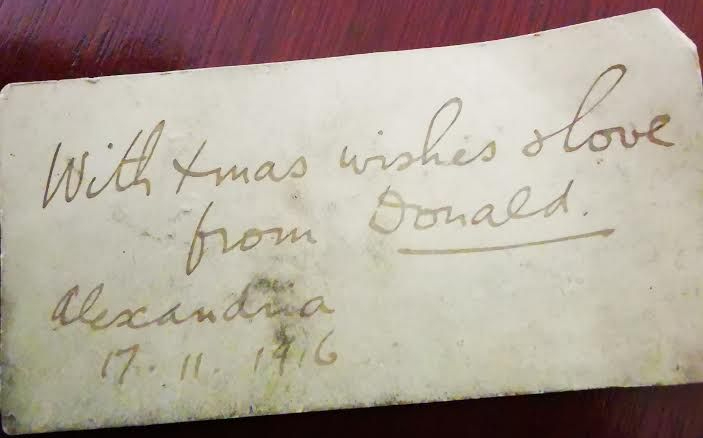 With Xmas wishes & love
from Donald.
Alexandria
17. 11. 1916